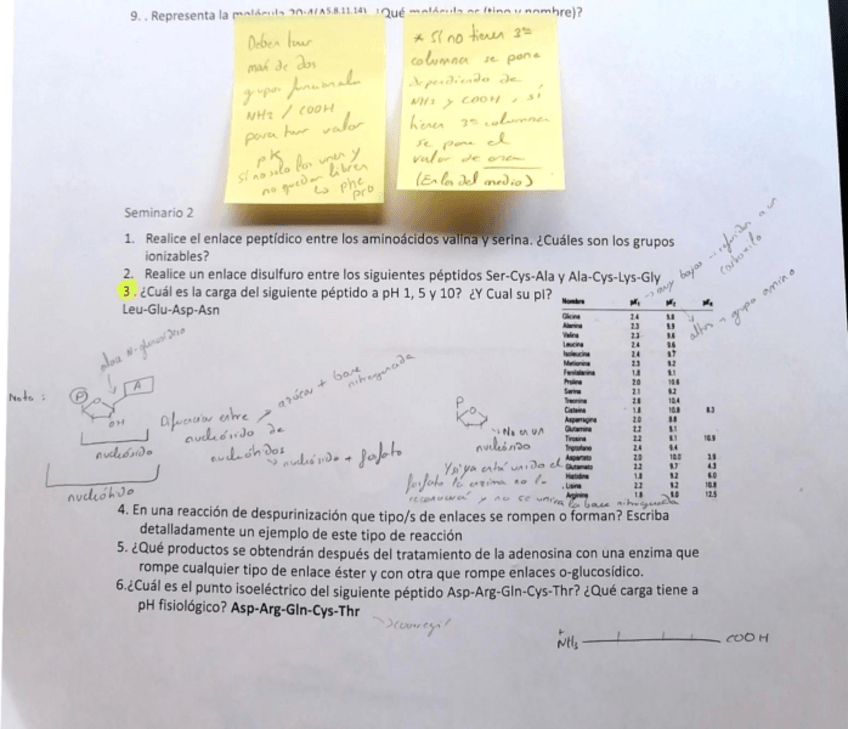 9. . Representa la molécula 20:4(Δ5,8,11,14). ¿Qué molécula es (tipo y nombre)?
Deben tener
más de dos
grupos funcionales
NH2 / COOH
para tener valor
pK
si no solo los unen y
no quedan libres
phe
pro
* Si no tienen 3ra
columna se pone
dependiendo de
NH3 y COOH, si
tienen 3ra columna
se pone el
valor de
(En los del medio)
Seminario 2
1. Realice el enlace peptídico entre los aminoácidos valina y serina. ¿Cuáles son los grupos
ionizables?
2. Realice un enlace disulfuro entre los siguientes péptidos Ser-Cys-Ala y Ala-Cys-Lys-Gly
3. ¿Cuál es la carga del siguiente péptido a pH 1, 5 y 10? ¿Y Cual su pI?
Leu-Glu-Asp-Asn
→ muy bajos → carboxilo
altos → grupo amino
Nombre
Glicina 2.4 9.8
Alanina 2.3 9.9
Valina 2.3 9.6
Leucina 2.4 9.6
Isoleucina 2.4 9.7
Metionina 2.3 9.2
Fenilalanina 1.8 9.1
Prolina 2.0 10.6
Serina 2.1 9.2
Treonina 2.6 10.4
Cisteína 1.8 10.8 8.3
Asparragina 2.0 8.8
Glutamina 2.2 9.1
Tirosina 2.2 9.1 10.9
Triptofano 2.4 9.4
Aspartato 2.0 10.0 3.9
Glutamato 2.2 9.7 4.3
Histidina 1.8 9.2 6.0
Lisina 2.2 9.2 10.8
Arginina 1.8 9.0 12.5
Nota:
P
A
OH
N-glucosídico
nucleósido
nucleótido
Diferencia entre
nucleósido de
nucleótidos
→ azúcar + base
nitrogenada
→ nucleósido + fosfato
P
→ No es un
nucleósido
Y si ya está unido el
fosfato la enzima no lo
reconocerá y no se unirá la base nitrogenada
4. En una reacción de despurinización que tipo/s de enlaces se rompen o forman? Escriba
detalladamente un ejemplo de este tipo de reacción
5. ¿Qué productos se obtendrán después del tratamiento de la adenosina con una enzima que
rompe cualquier tipo de enlace éster y con otra que rompe enlaces o-glucosídico.
6.¿Cuál es el punto isoeléctrico del siguiente péptido Asp-Arg-Gln-Cys-Thr? ¿Qué carga tiene a
pH fisiológico? Asp-Arg-Gln-Cys-Thr
→ corregir
+NH3 COOH